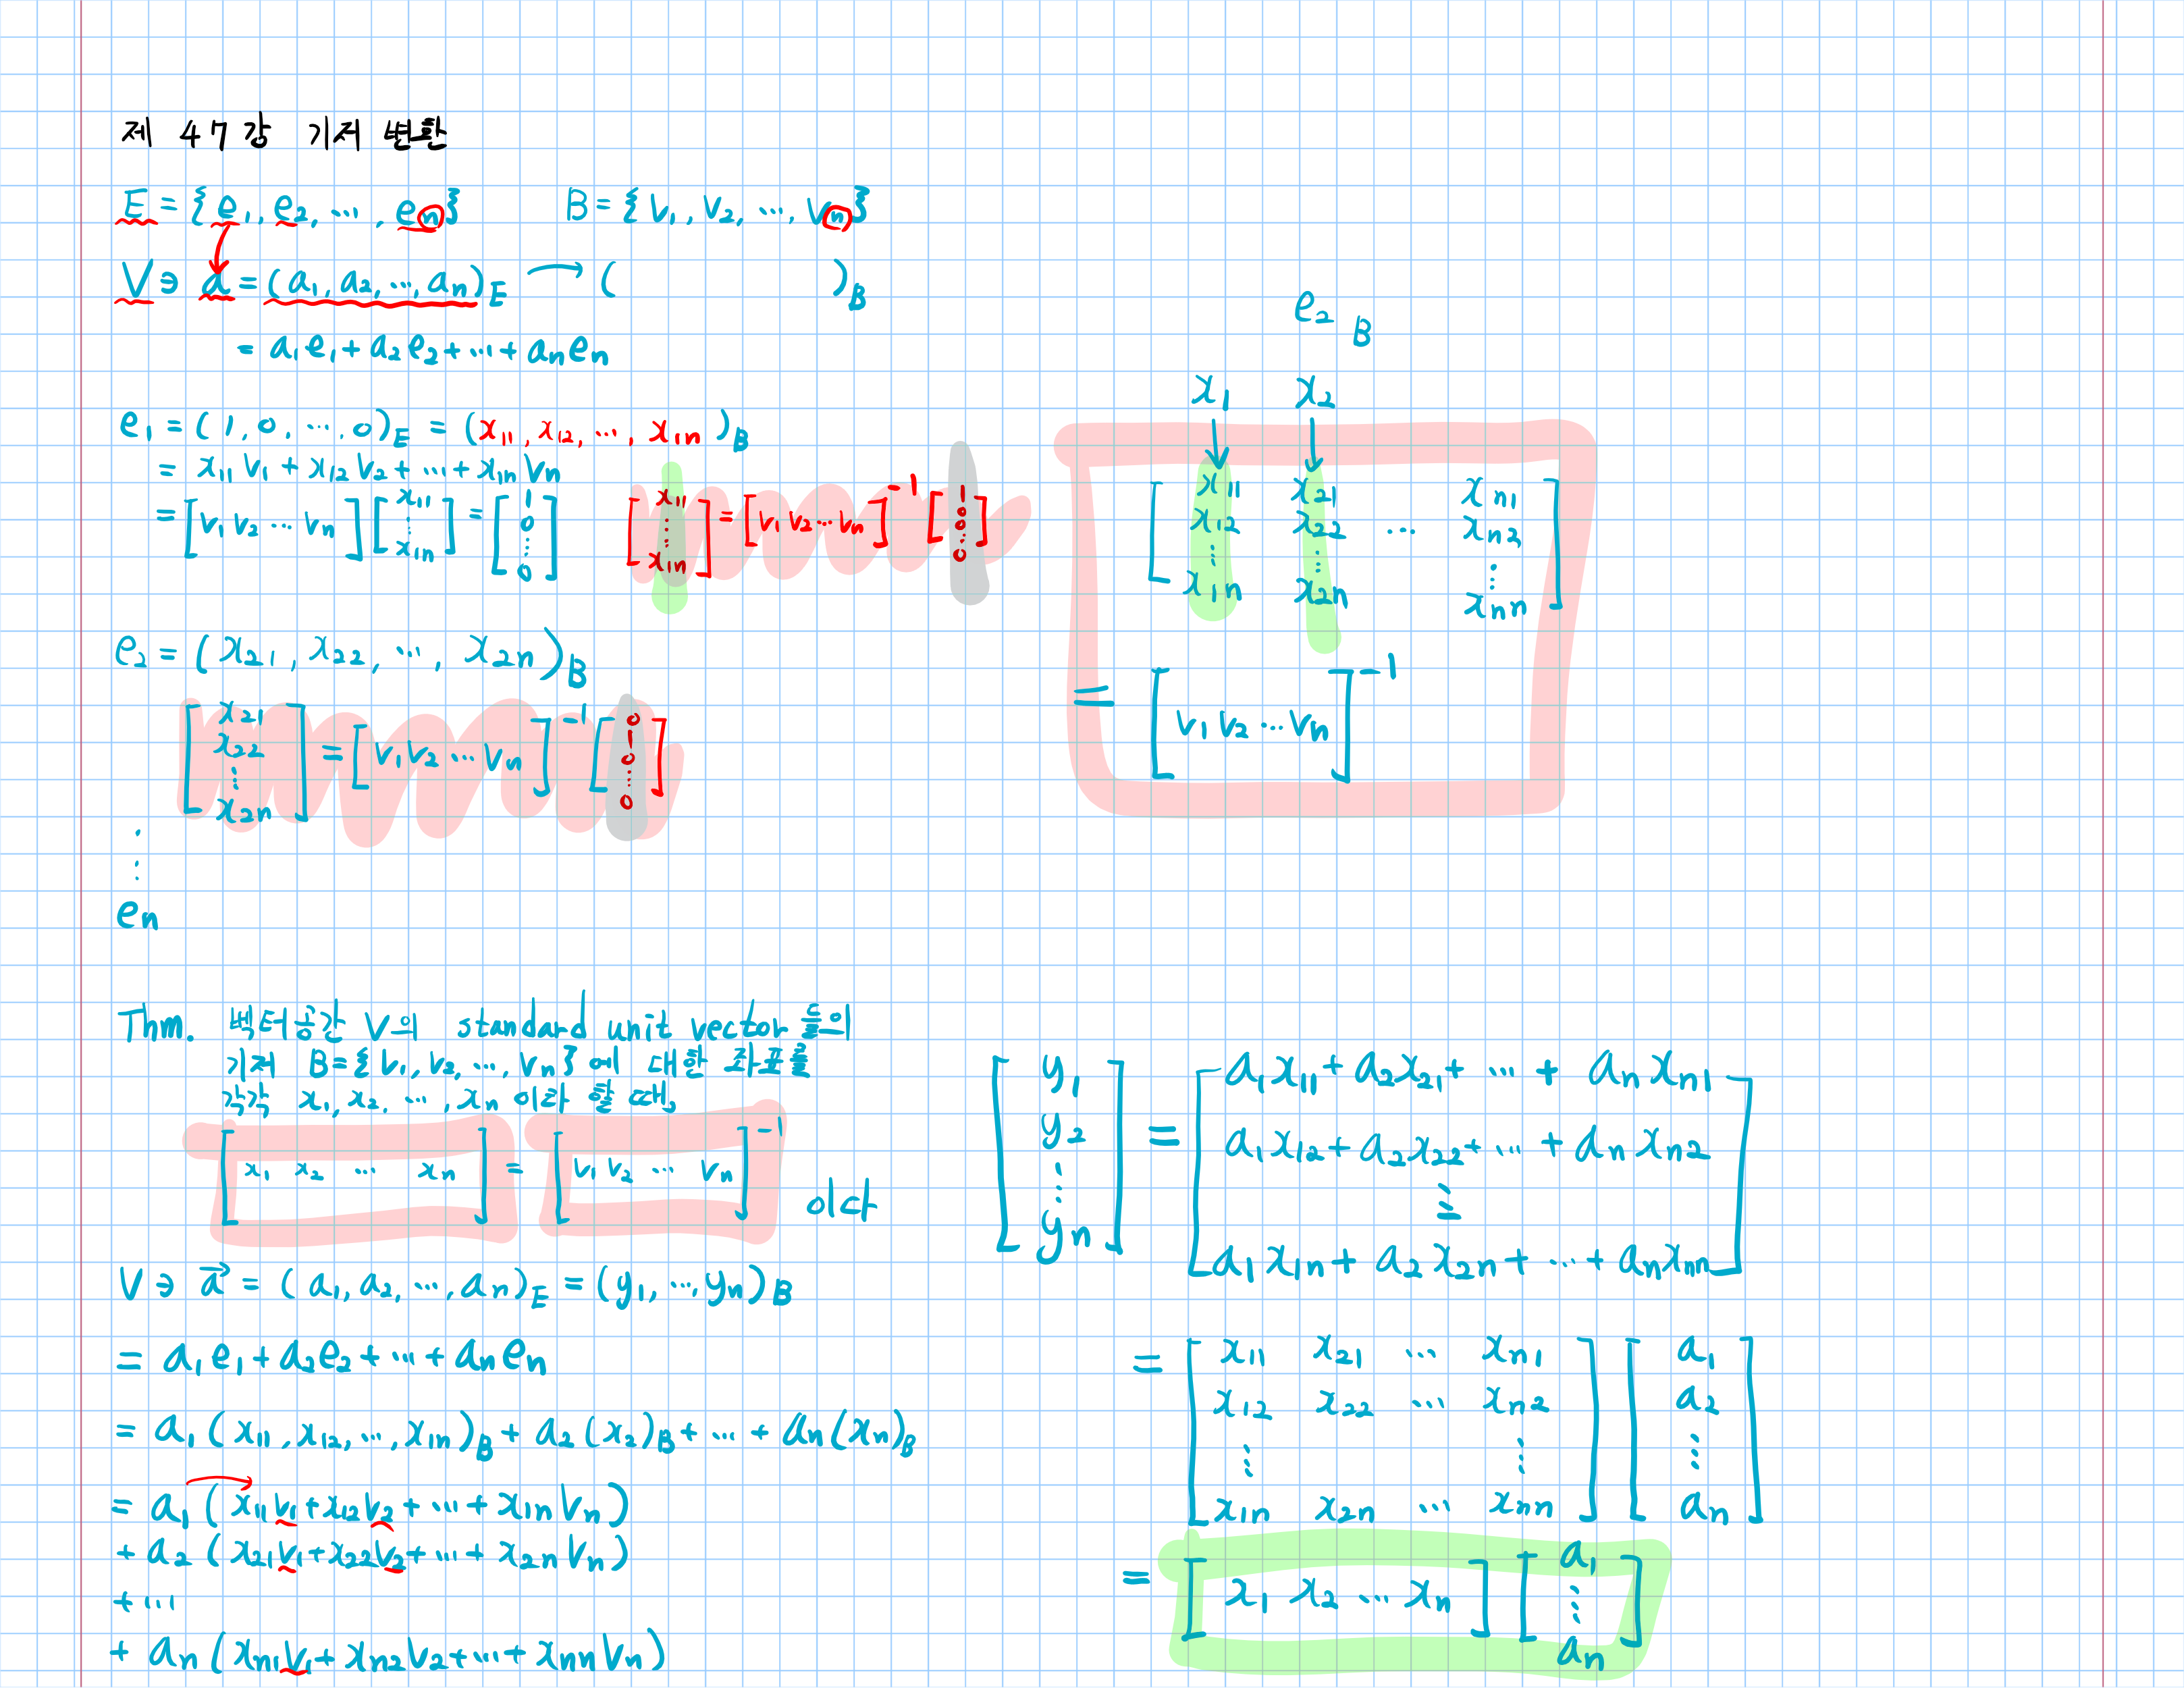 제 47강 기저 변환
E = {e₁, e₂, ⋯, eₙ} B = {v₁, v₂, ⋯, vₙ}
V∋ a = (a₁, a₂, ⋯, aₙ)_E → ( )_B
= a₁e₁ + a₂e₂ + ⋯ + aₙeₙ
e₁ = (1, 0, ⋯, 0)_E = (x₁₁, x₁₂, ⋯, x₁ₙ)_B
= x₁₁v₁ + x₁₂v₂ + ⋯ + x₁ₙvₙ
= [v₁ v₂ ⋯ vₙ] [x₁₁ ⋮ x₁ₙ] = [1 0 ⋮ 0] [x₁₁ ⋮ x₁ₙ] = [v₁ v₂ ⋯ vₙ]⁻¹ [1 0 0 ⋮ 0]
e₂ = (x₂₁, x₂₂, ⋯, x₂ₙ)_B
[x₂₁ x₂₂ ⋮ x₂ₙ] = [v₁ v₂ ⋯ vₙ]⁻¹ [0 1 0 ⋮ 0]
⋮
eₙ
e₂ B
x₁ x₂
x₁₁ x₂₁ xₙ₁
x₁₂ x₂₂ ⋯ xₙ₂
⋮ ⋮ ⋮
x₁ₙ x₂ₙ xₙₙ
= [v₁ v₂ ⋯ vₙ]⁻¹
Thm. 벡터공간 V의 standard unit vector 들의
기저 B={v₁, v₂, ⋯, vₙ}에 대한 좌표를
각각 x₁, x₂, ⋯, xₙ 이라 할 때,
[x₁ x₂ ⋯ xₙ] = [v₁ v₂ ⋯ vₙ]⁻¹ 이다
V∋ a⃗ = (a₁, a₂, ⋯, aₙ)_E = (y₁, ⋯, yₙ)_B
= a₁e₁ + a₂e₂ + ⋯ + aₙeₙ
= a₁(x₁₁, x₁₂, ⋯, x₁ₙ)_B + a₂(x₂)_B + ⋯ + aₙ(xₙ)_B
= a₁(x₁₁v₁ + x₁₂v₂ + ⋯ + x₁ₙvₙ)
+ a₂(x₂₁v₁ + x₂₂v₂ + ⋯ + x₂ₙvₙ)
+ ⋯
+ aₙ(xₙ₁v₁ + xₙ₂v₂ + ⋯ + xₙₙvₙ)
y₁ a₁x₁₁ + a₂x₂₁ + ⋯ + aₙxₙ₁
y₂ = a₁x₁₂ + a₂x₂₂ + ⋯ + aₙxₙ₂
⋮ ⋮
yₙ a₁x₁ₙ + a₂x₂ₙ + ⋯ + aₙxₙₙ
= x₁₁ x₂₁ ⋯ xₙ₁ a₁
x₁₂ x₂₂ ⋯ xₙ₂ a₂
⋮ ⋮ ⋮
x₁ₙ x₂ₙ ⋯ xₙₙ aₙ
= [x₁ x₂ ⋯ xₙ] [a₁ ⋮ aₙ]